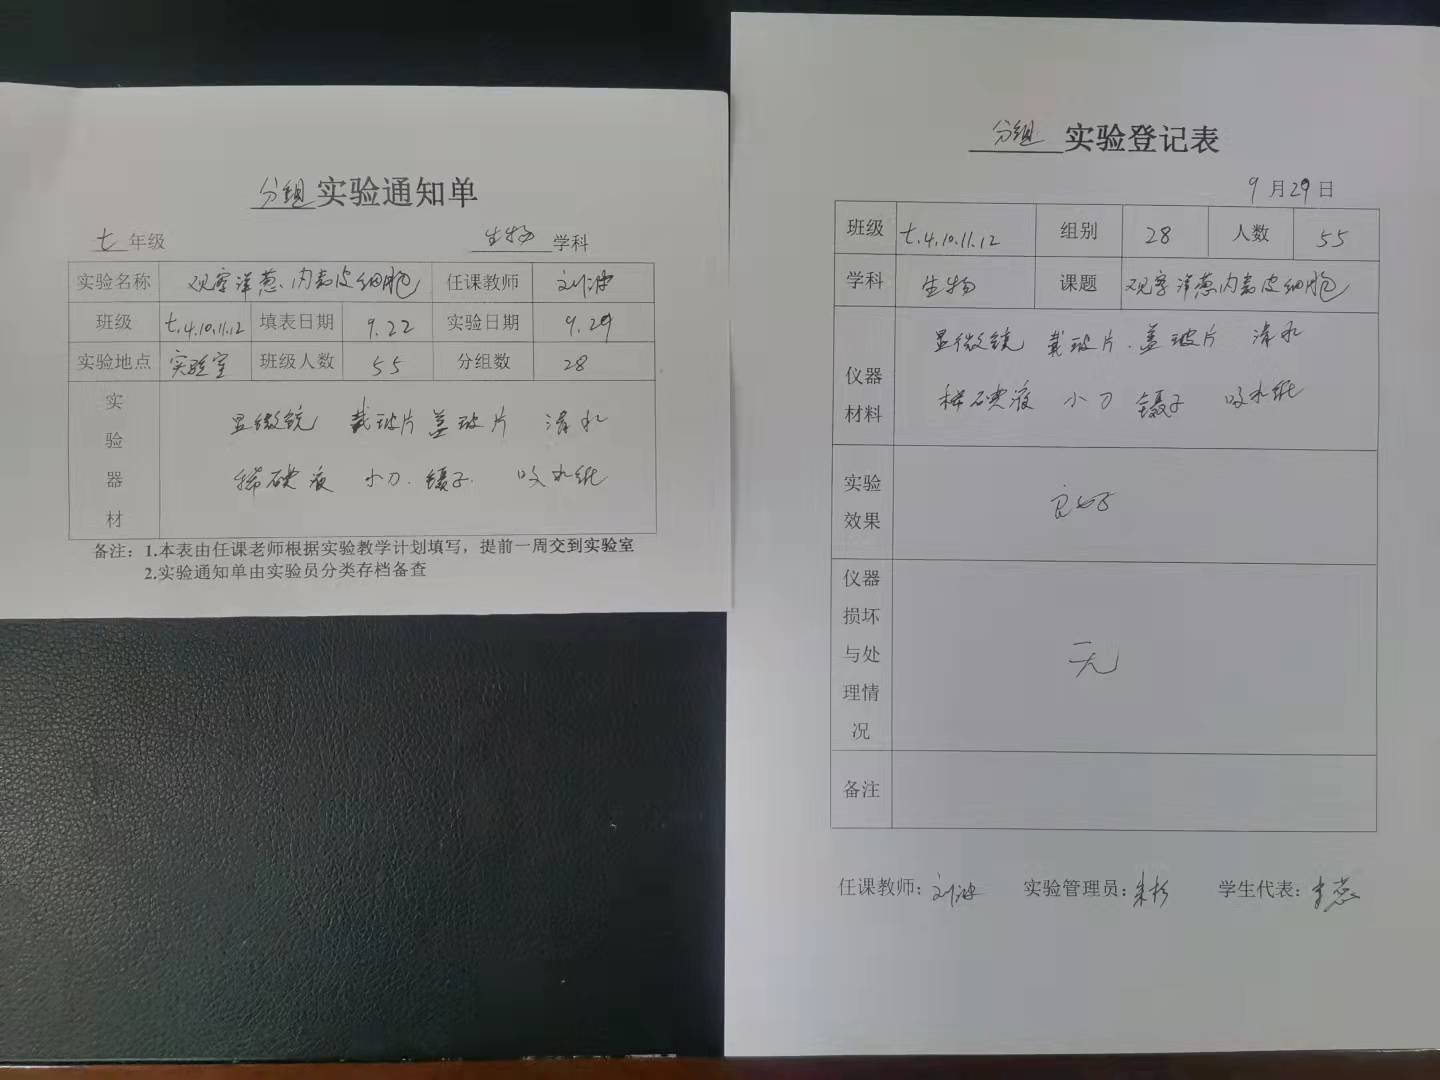 分组实验通知单
七年级 生物学科
实验名称 观察洋葱内表皮细胞 任课教师 刘波
班级 七.4.10.11.12 填表日期 9.22 实验日期 9.29
实验地点 实验室 班级人数 55 分组数 28
实验器材
显微镜 载玻片 盖玻片 清水
稀碘液 小刀. 镊子. 吸水纸
备注：1.本表由任课老师根据实验教学计划填写，提前一周交到实验室
2.实验通知单由实验员分类存档备查
分组 实验登记表
9月29日
班级 七.4.10.11.12 组别 28 人数 55
学科 生物 课题 观察洋葱内表皮细胞
仪器材料
显微镜 载玻片.盖玻片 清水
稀碘液 小刀 镊子 吸水纸
实验效果 良好
仪器损坏与处理情况 无
备注
任课教师：刘波 实验管理员：朱杉 学生代表：李蕊